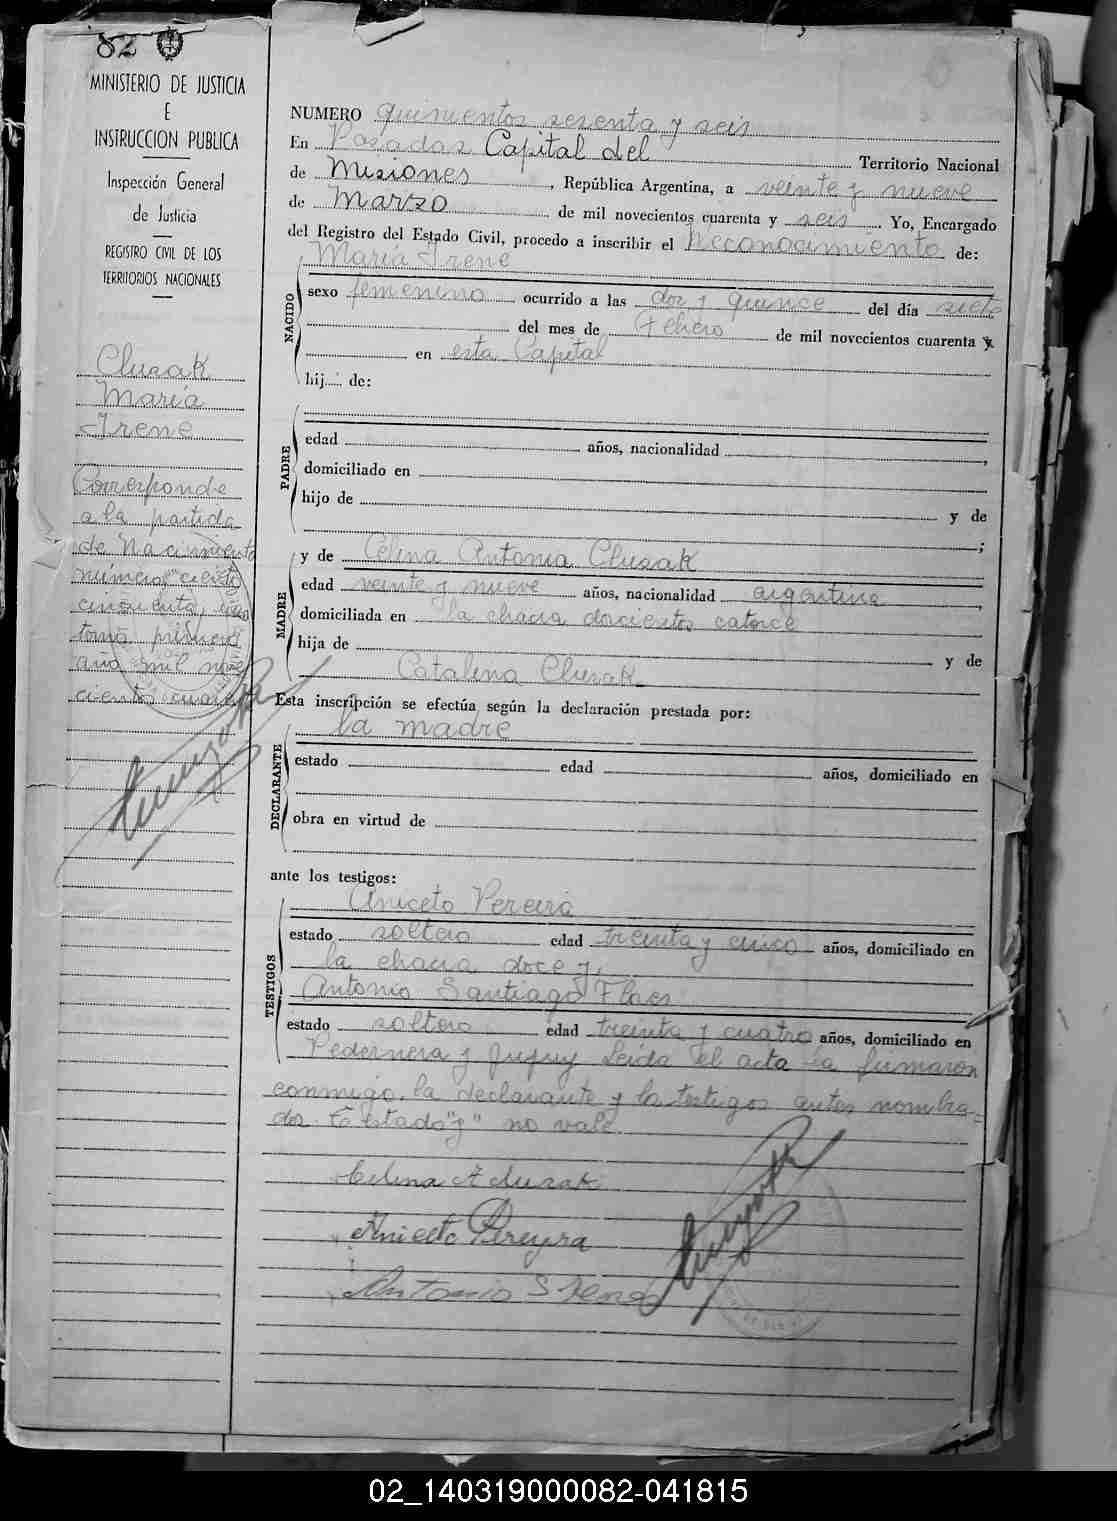 82
MINISTERIO DE JUSTICIA
E
INSTRUCCION PUBLICA
Inspección General
de Justicia
REGISTRO CIVIL DE LOS
TERRITORIOS NACIONALES
Cluzak
María
Irene
Corresponde
a la partida
de Nacimiento
número "ciento
cincuenta,
tomo primero
año mil nove
cientos cuaren
NUMERO quinientos sesenta y seis
En Posadas Capital del Territorio Nacional
de Misiones, República Argentina, a veinte y nueve
de Marzo de mil novecientos cuarenta y seis. Yo, Encargado
del Registro del Estado Civil, procedo a inscribir el Reconocimiento de:
María Irene
NACIDO
sexo femenino ocurrido a las dos y quince del día siete
del mes de Febrero de mil novecientos cuarenta y
en esta Capital
hij de:
PADRE
edad años, nacionalidad ,
domiciliado en
hijo de y de
;
MADRE
y de Celina Antonia Cluzak
edad veinte y nueve años, nacionalidad argentina,
domiciliada en la chacra doscientos catorce
hija de y de
Catalina Cluzak
Esta inscripción se efectúa según la declaración prestada por:
la madre
DECLARANTE
estado edad años, domiciliado en
obra en virtud de
ante los testigos:
Aniceto Pereira
TESTIGOS
estado soltero edad treinta y cinco años, domiciliado en
la chacra doce y
Antonio Santiago Flores
estado soltero edad treinta y cuatro años, domiciliado en
Pedernera y Jujuy Leida el acta la firmaron
conmigo, la declarante y los testigos antes nombra-
dos. Testado "y" no vale
Celina A Cluzak
Aniceto Pereyra
Antonio S
02_140319000082-041815